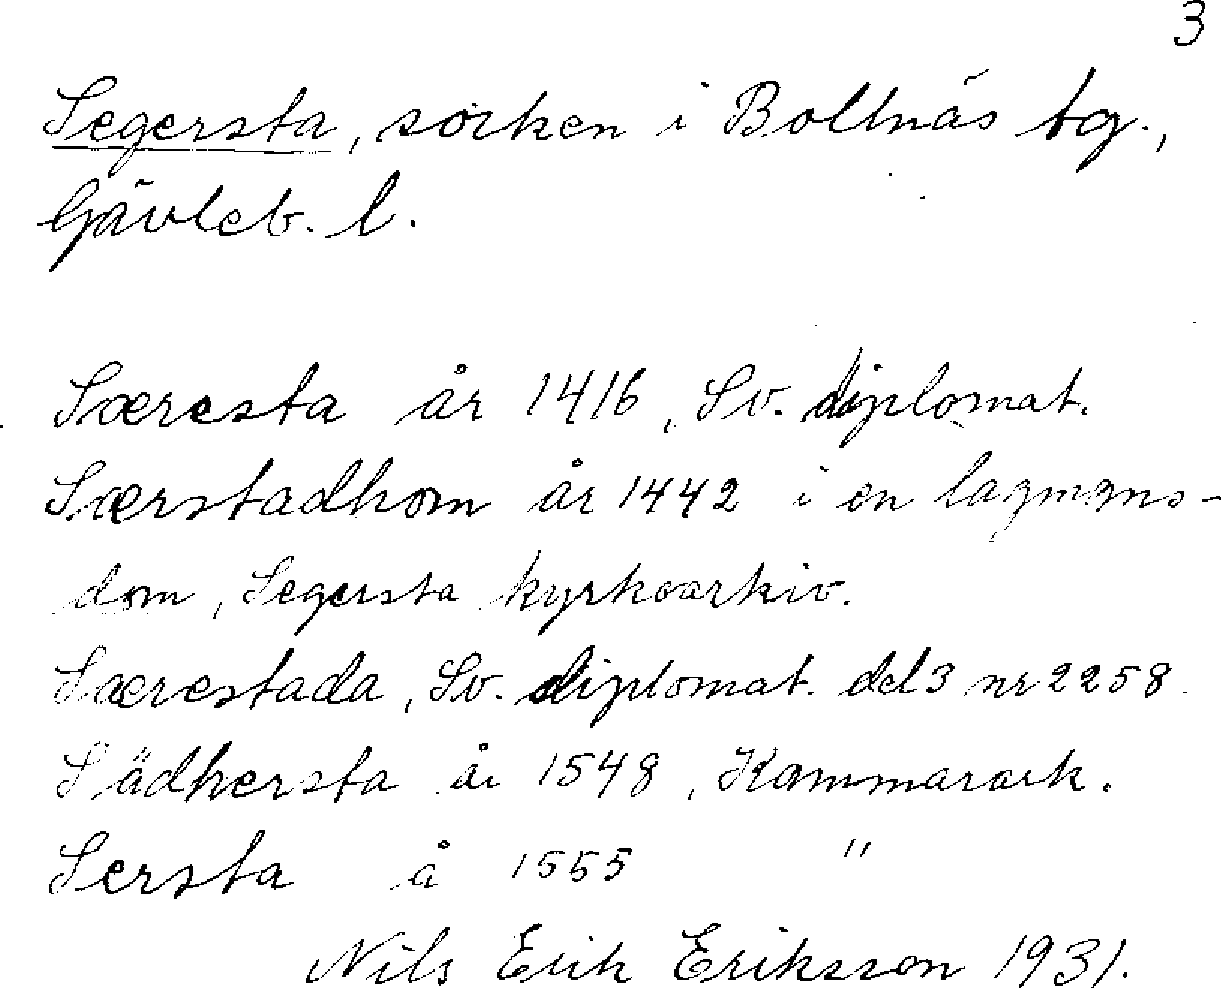 3
Segersta, socken i Bollnäs tg.,
Gävleb. l.
Særesta år 1416, Sv. diplomat.
Særstadhom år 1442 i en lagmans-
dom, Segersta kyrkoarkiv.
Særestada, Sv. diplomat. del 3 nr 2258.
Sädhersta år 1548, Kammarark.
Sersta å 1555 "
Nils Erik Eriksson 1931.